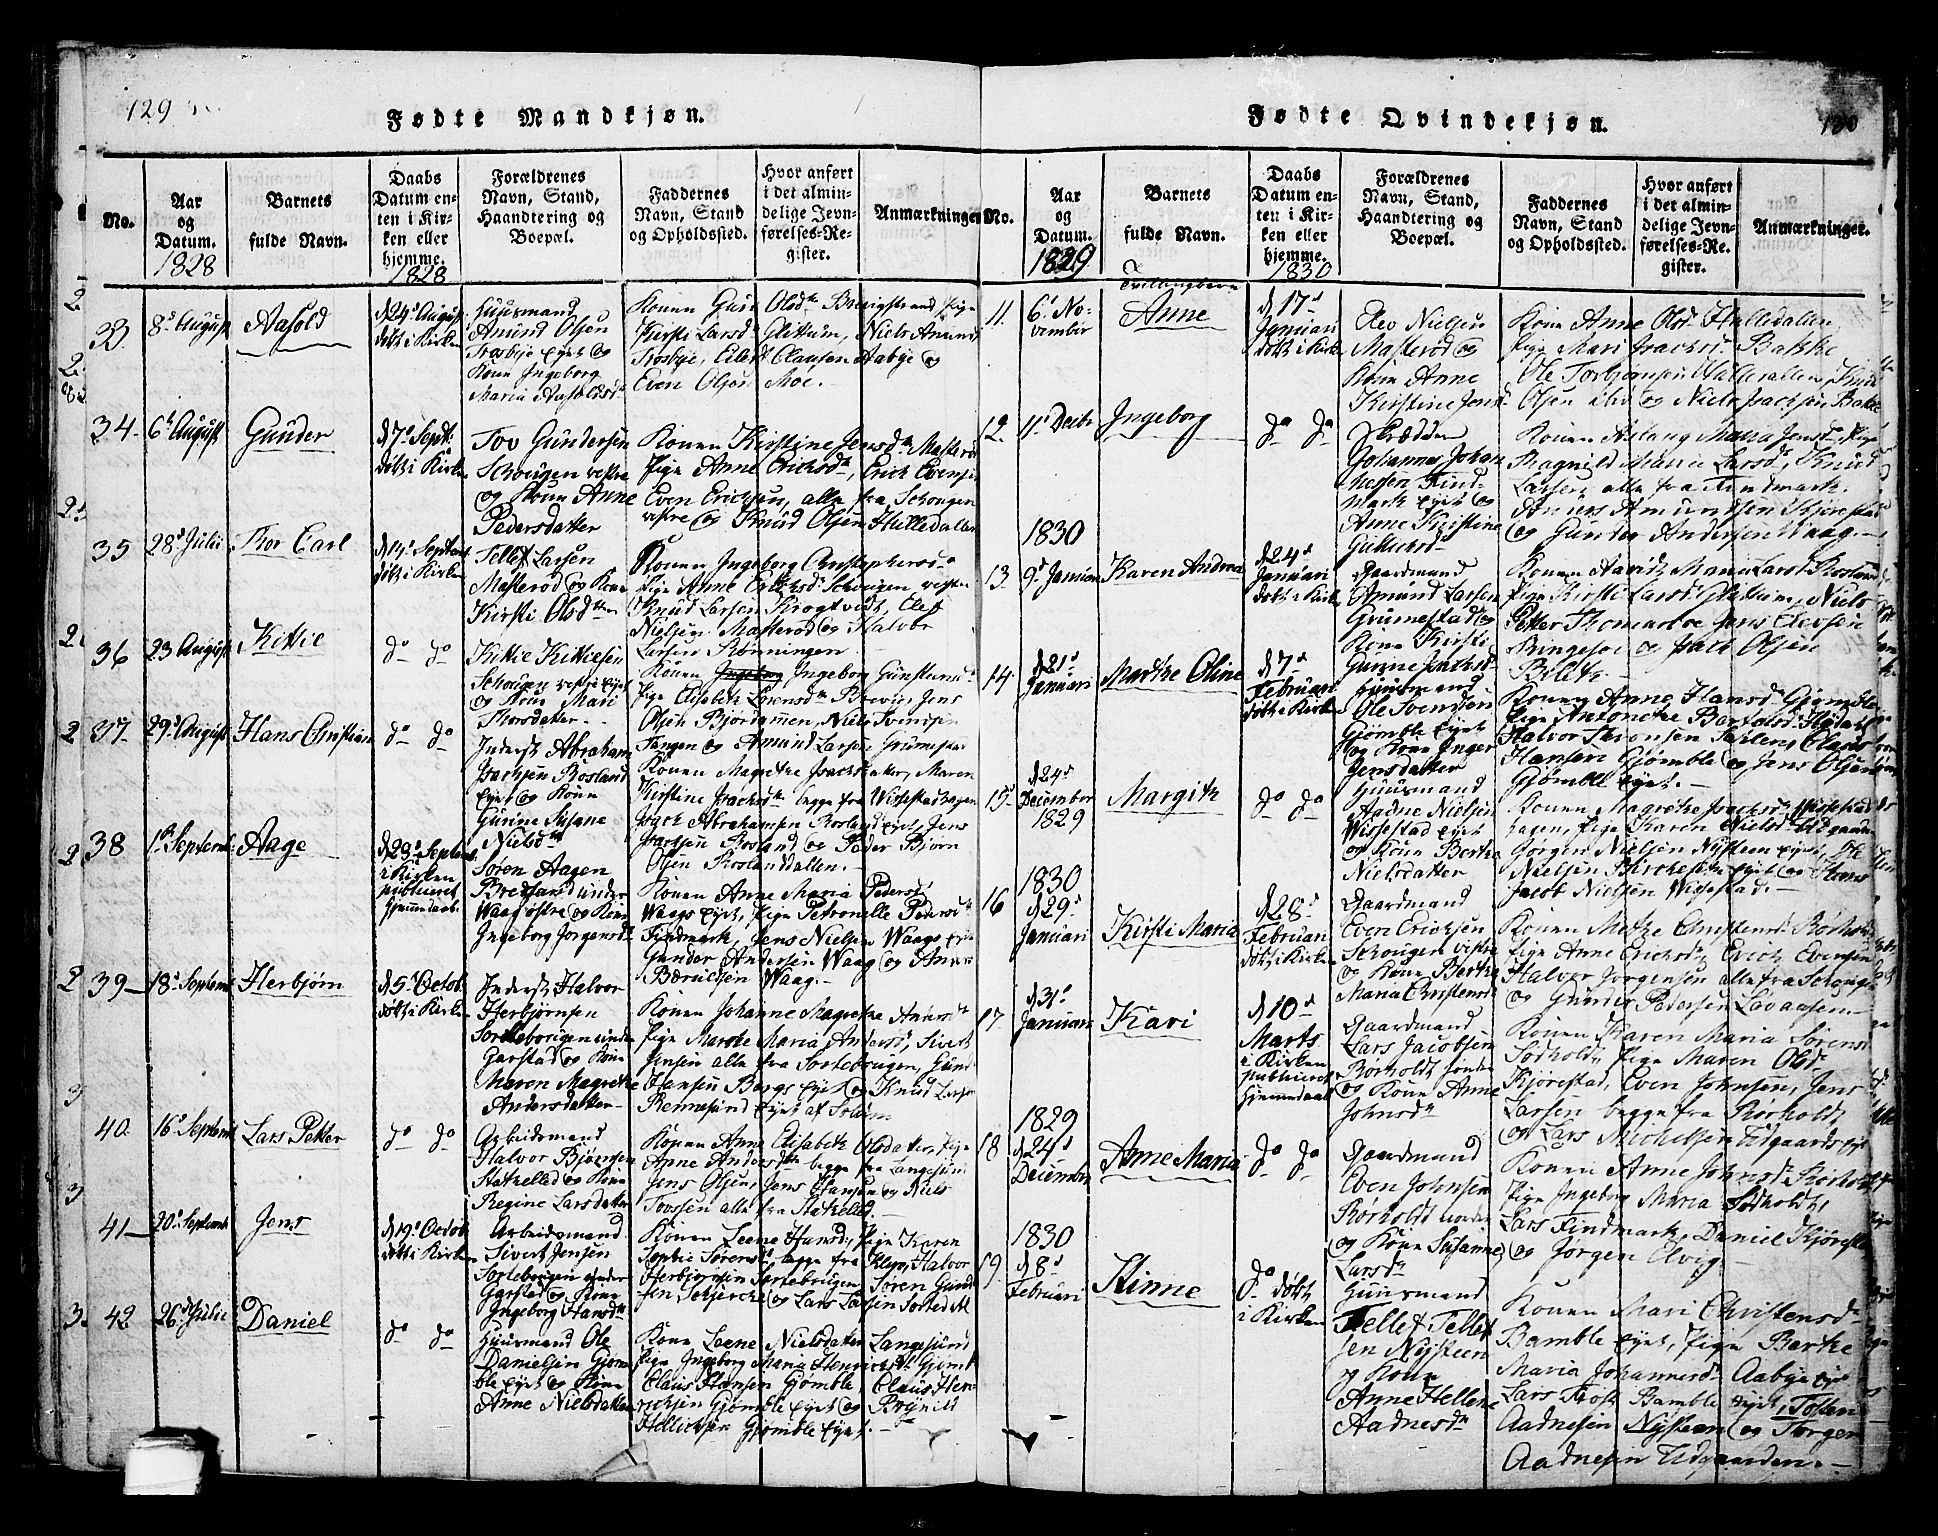 129
Fødte Mandkjøn.
No.
Aar
og
Datum.
1828
Barnets
fulde Navn.
Daabs
Datum en-
ten i Kir-
ken eller
hjemme.
1828
Forældrenes
Navn, Stand,
Haandtering og
Boepæl.
Faddernes
Navn, Stand
og Opholdssted.
Hvor anført
i det almin-
delige Jevn-
førelses-Re-
gister.
Anmærkninger
33
8d August
Aasold
d 24d August
døbt i Kirken
Huusmand
Amund Olsen
Trosbye Eyet og
Kone Ingeborg
Maria Aasoldsd
Konen Olsd Brevigstrand, Pige
Kirsti Larsd Glittrum, Niels Amunds
Trosbye, Eilert Clausen Aabye og
Even Olsen Moe.
34.
6t August
Gunder
d 7d Sept
døbt i Kirken
Tov Gundersen
Schougen vestre
og Kone Anne
Pedersdatter
Konen Kirstine Jensdt Masterød
Pige Anne Ericksdt, Erick Evensen
Even Ericksen, alle fra Schougen
vestre og Knud Olsen Hulledalen
35
28d Julii
Thor Carl
d 14d Septem
døbt i Kirken
Tellef Larsen
Masterød og Kone
Kirsti Olsdtter
Konen Ingeborg Christophersd
Pige Anne Ericksd Schougen vestre
Knud Larsen Krogtvedt, Clef
Nielsen Masterød og Halvor
Larsen Rønningen
36
23 August
Kittie
do do
Kittie Kittiesen
Schougen vestre Eyet
og Kone Mari
Thorsdatter
Konen Ingeborg Ingeborg Gunsteinsd
Pige Elisabeth Lorensdt Brevig, Jens
Olsen Bjordammen, Niels Svensen
Tangen og Amund Larsen Grumestad
37
29d August
Hans Christian
do do
Inderst Abraham
Isachsen Rosland
Eyet og Kone
Gurine Susane
Nielsd
Konen Magrethe Isachsdatter, Maren
Kirstine Isachsdt begge fra Wissestadhagen
Isach Abrahamsen Rosland Eyet, Jens
Isachsen Rosland og Peder Bjørn
Olsen Roslanddallen.
38
1st Septemb
Aage
d 28d Septemb
i Kirken
publiceret
Hjemmedaab
Søren Aagen
under
Waag østre og Kone
Ingeborg Jørgensd
Konen Anne Maria Pedersd
Waags Eyet, Pige Petronelle Pedersd
Findmark, Jens Nielsen Waags Eyet
Gunder Andersen Waag og Anders
Waag.
39
18d Septemb
Herbjørn
d 5t Octob
døbt i Kirken
Inderst Halvor
Herbjørnsen
Sortebrogen under
Garstad og Kone
Maren Magrethe
Andersdatter
Konen Johanne Magrethe Andersdt
Pige Marthe Maria Andersd, Sivert
Jensen alle fra Sortebrogen, Gund
Hansen Bergs Eyet og Knud Larsen
40
16d Septemb
Lars Petter
do do
Arbeidsmand
Halvor Bjørnsen
Stathelled og Kone
Regine Larsdatter
Konen Anne Elisabeth Olsdatter, Pige
Anne Andersdt begge fra Langesund
Jens Olsen, Jens Hansen og Niels
Tovsen alle fra Stathelled.
41
20d Septemb
Jens
d 19d Octob
døbt i Kirken
Arbeidsmand
Sivert Jensen
Sortebrogen under
Garstad og Kone
Ingeborg Hansdt
Konen Leene Hansd, Pige Karen
Sophie Sørensd begge fra Kleps, Halvor
Herbjørnsen Sortebrogen, Søren Gund
42
26d Julii
Daniel
do do
Huusmand Ole
Danielsen Gjøm-
ble Eyet og Kone
Anne Nielsdatter
Kone Leene Nielsdatter Langesund
Pige Ingeborg Maria Henricksdt Gjøm
Claus Hansen Gjømble, Claus Hen-
ricksen Gjømble Eyet og Brynild
Hellicksen Gjømble Eyet.
Fødte Qvindekjøn.
130
No.
Aar
og
Datum.
1829
Barnets
fulde Navn.
Daabs
Datum en-
ten i Kir-
ken eller
hjemme.
1830
Forældrenes
Navn, Stand,
Haandtering og
Boepæl.
Faddernes
Navn, Stand
og Opholdssted.
Hvor anført
i det almin-
delige Jevn-
førelses-Re-
gister.
Anmærkninger.
11
6t No-
vember
Tvillingbarn
Anne
d 17d
Januari
døbt i Kirken
Clev Nielsen
Masterød og
Kone Anne
Kirstine Jensd
Kone Anne Olsd Hulledallen,
Pige Mari Isachsd Bakke
Ole Torbjørnsen Hulledallen, Knud
Olsen ibid og Niels Isachsen Bakke
12
11d Decbr
Ingeborg
do do
Skrædder
Johannes Johan
nessen Find-
mark Eyet og
Anne Kirstine
Konen Aslaug Maria Jensd, Pige
Ragnild Maria Larsd, Knud
Larsen, alle fra Findmark.
Anders Amundsen Kjørestad
og Gunder Andersen Waag.
1830
13
9d Januari
Karen Andrea
d 24d
Januari
døbt i Kirken
Gaardmand
Amund Larsen
Grumestad og
Kone Kirsti
Gurine Isachsd
Pige Kirsti Larsd Glittrum, Niels
Petter Thomassen, Jens Clevsen
og Jacob Olsen
14
d 21d
Januari
Marthe Oline
d 7d
Februari
døbt i Kirken
Huusmand
Ole Svendsen
Gjømble Eyet
og Kone Inger
Jensdatter
Konen Anne Hansd Gjømble
Pige Antonette Bertholsd
Halvor
Hansen Gjømble og Jens Olsen
Gjømble Eyet.
15
d 24d
December
1829
Margith
do do
Huusmand
Aadne Nielsen
Wissestad Eyet
og Kone Berthe
Nielsdatter
Konen Magrethe Isachsd Wissestad
hagen, Pige Karen Nielsd Udgaarden
Jørgen Nielsen Nysteen Eyet, Ole
Jacob Nielsen Wissestad.
1830
16
d 29d
Januari
Kirsti Maria
d 28d
Februari
døbt i Kirken
Gaardmand
Even Ericksen
Schougen vestre
og Kone Berthe
Maria Christensd
Konen Methe Christensd Rørholt
Pige Anne Ericksd, Erick Evensen
Halvor Jørgensen alle fra Schougen
og Gunder Petersen Lavaasen
17
d 31d
Januari
Kari
d 10d
Marts
i Kirken
publiceret
Hjemmedaab
Gaardmand
Lars Jacobsen
Rørholt søndre
og Kone Anne
Johnsd
Konen Karen Maria Sørensd
Sødholt, Pige Maren Olsd
Kjørestad, Even Johnsen, Jens
Larsen begge fra Rørholt,
og Lars Michelsen Udgaards Eyet
1829
18
d 24d
Decembr
Anne Maria
do do
Gaardmand
Even Johnsen
Rørholt nordre
og Kone Susanne
Larsd
Konen Anne Johnsd Rørholt
Pige Ingeborg Maria Sødholt,
Lars Findmark, Daniel Kjørestad
og Jørgen Elvig
1830
19
d 8d
Februari
Stinne
do døbt
i Kirken
Huusmand
Tellef Tellef
sen Nysteen
og Kone
Anne Hellene
Aadnesdt
Konen Mari Christensd
Bamble Eyet, Pige Berthe
Maria Johannesd Aabye Eyet
Lars Trost Bamble Eyet, Tosten
Aadnesen Nysteen og Jørgen
Aadnesen Udgaarden.